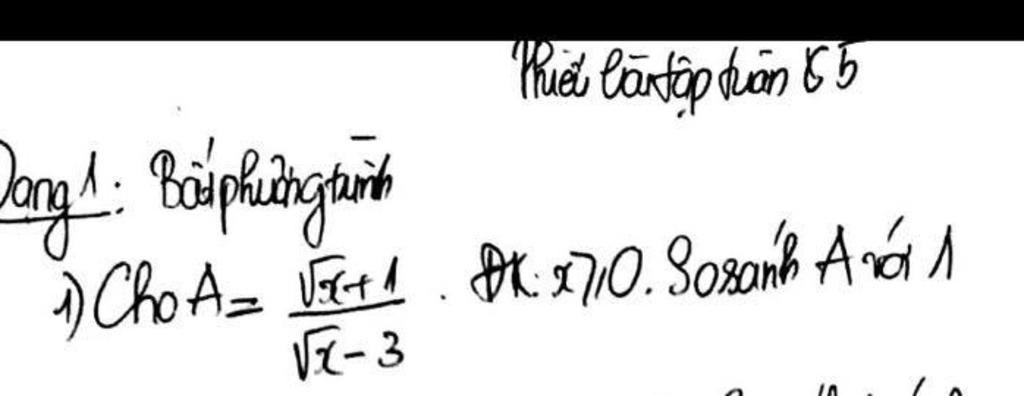 Phiếu bài tập tuần 5
Dạng 1: Bất phương trình
1) Cho A = \frac{\sqrt{x}+1}{\sqrt{x}-3} . ĐK: x ⩾ 0. So sánh A với 1